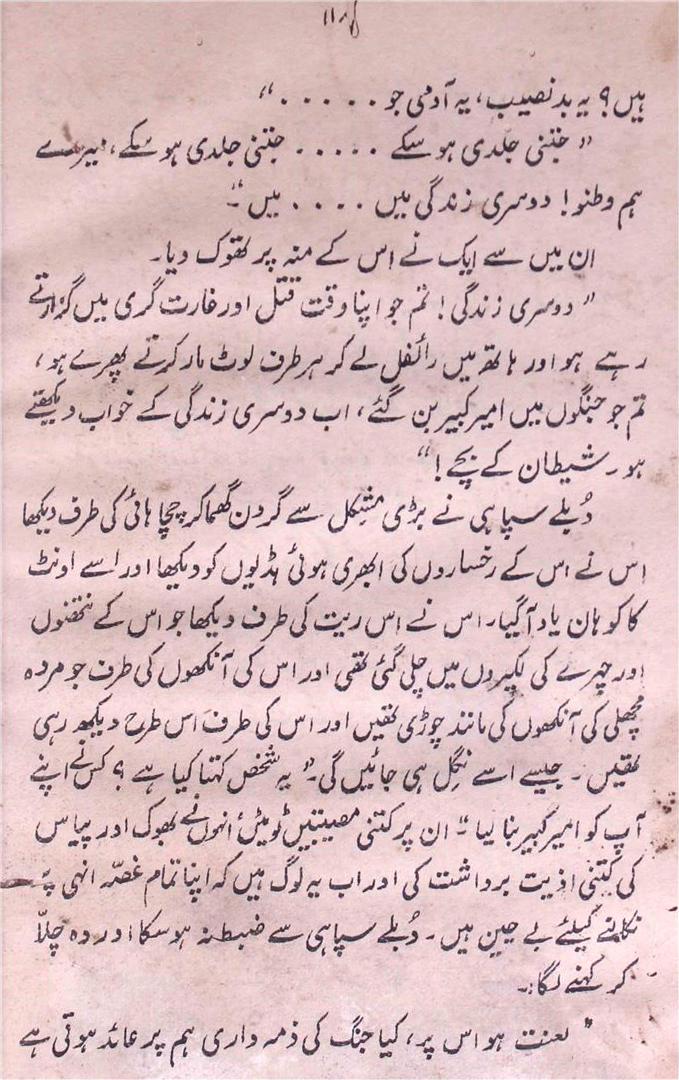 ہیں؟ یہ بد نصیب، یہ آدمی جو ۔ ۔ ۔ ۔ ۔"
"جتنی جلدی ہو سکے ۔ ۔ ۔ ۔ ۔ جتنی جلدی ہو سکے، میرے
ہم وطنو! دوسری زندگی میں ۔ ۔ ۔ ۔ میں"۔
ان میں سے ایک نے اس کے منہ پر تھوک دیا۔
"دوسری زندگی! تم جو اپنا وقت قتل اور غارت گری میں گزارتے
رہے ہو اور ہاتھ میں رائفل لے کر ہر طرف لوٹ مار کرتے پھرے ہو،
تم جو جنگوں میں امیر کبیر بن گئے، اب دوسری زندگی کے خواب دیکھتے
ہو۔ شیطان کے بچے!"
دُبلے سپاہی نے بڑی مشکل سے گردن گھما کر چچا ہائی کی طرف دیکھا
اس نے اس کے رخساروں کی ابھری ہوئی ہڈیوں کو دیکھا اور اسے اونٹ
کا کوہان یاد آگیا۔ اس نے اس ریت کی طرف دیکھا جو اس کے نتھنوں
اور چہرے کی لکیروں میں چلی گئی تھی اور اس کی آنکھوں کی طرف جو مردہ
مچھلی کی آنکھوں کی مانند چوڑی تھیں اور اس کی طرف اس طرح دیکھ رہی
تھیں۔ جیسے اسے نگل ہی جائیں گی۔" یہ شخص کہتا کیا ہے؟ کس نے اپنے
آپ کو امیر کبیر بنا لیا"۔ ان پر کتنی مصیبتیں ٹوٹیں، انہوں نے بھوک اور پیاس
کی کتنی اذیت برداشت کی اور اب یہ لوگ ہیں کہ اپنا تمام غصّہ انہی پہ
نکالنے کیلئے بے چین ہیں۔ دُبلے سپاہی سے ضبط نہ ہو سکا اور وہ چلّا
کر کہنے لگا:۔
"لعنت ہو اس پر، کیا جنگ کی ذمہ داری ہم پر عائد ہوتی ہے